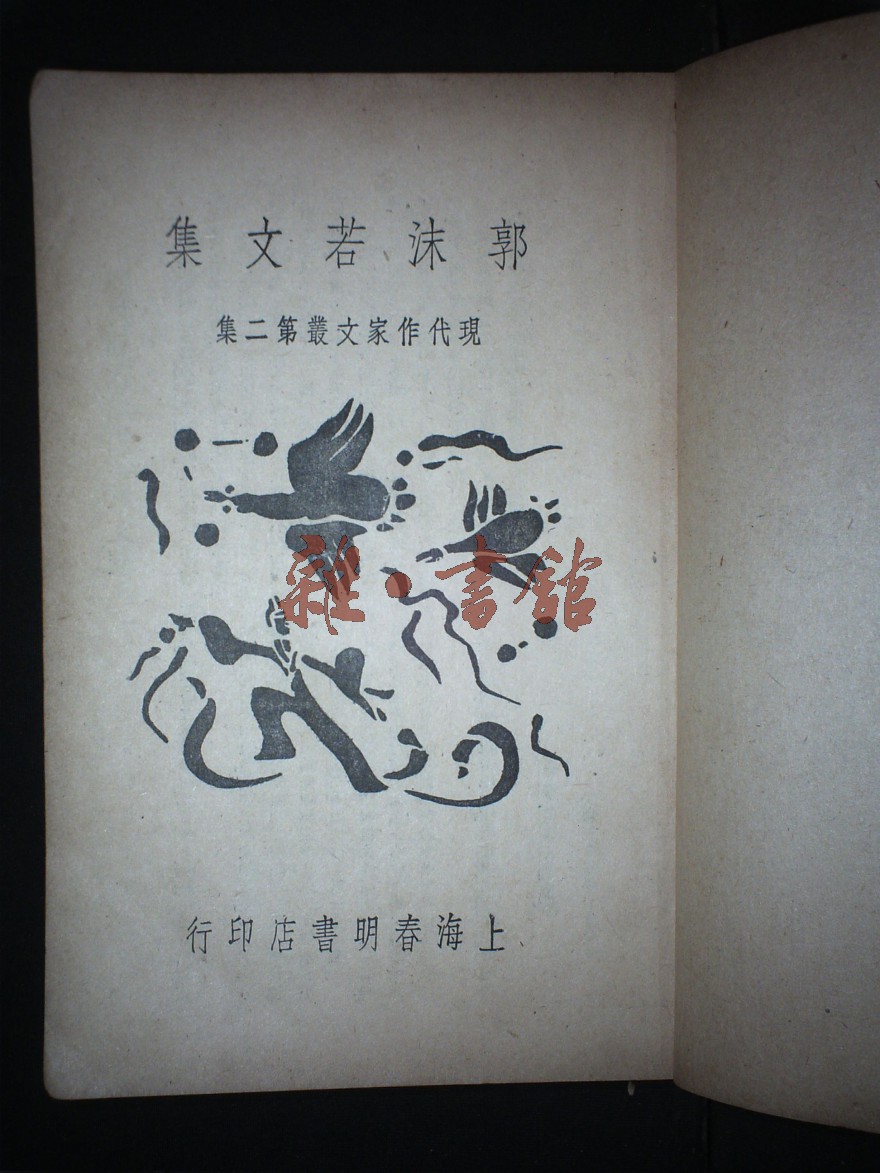 郭沫若文集
現代作家文叢第二集
雜·書館
上海春明書店印行